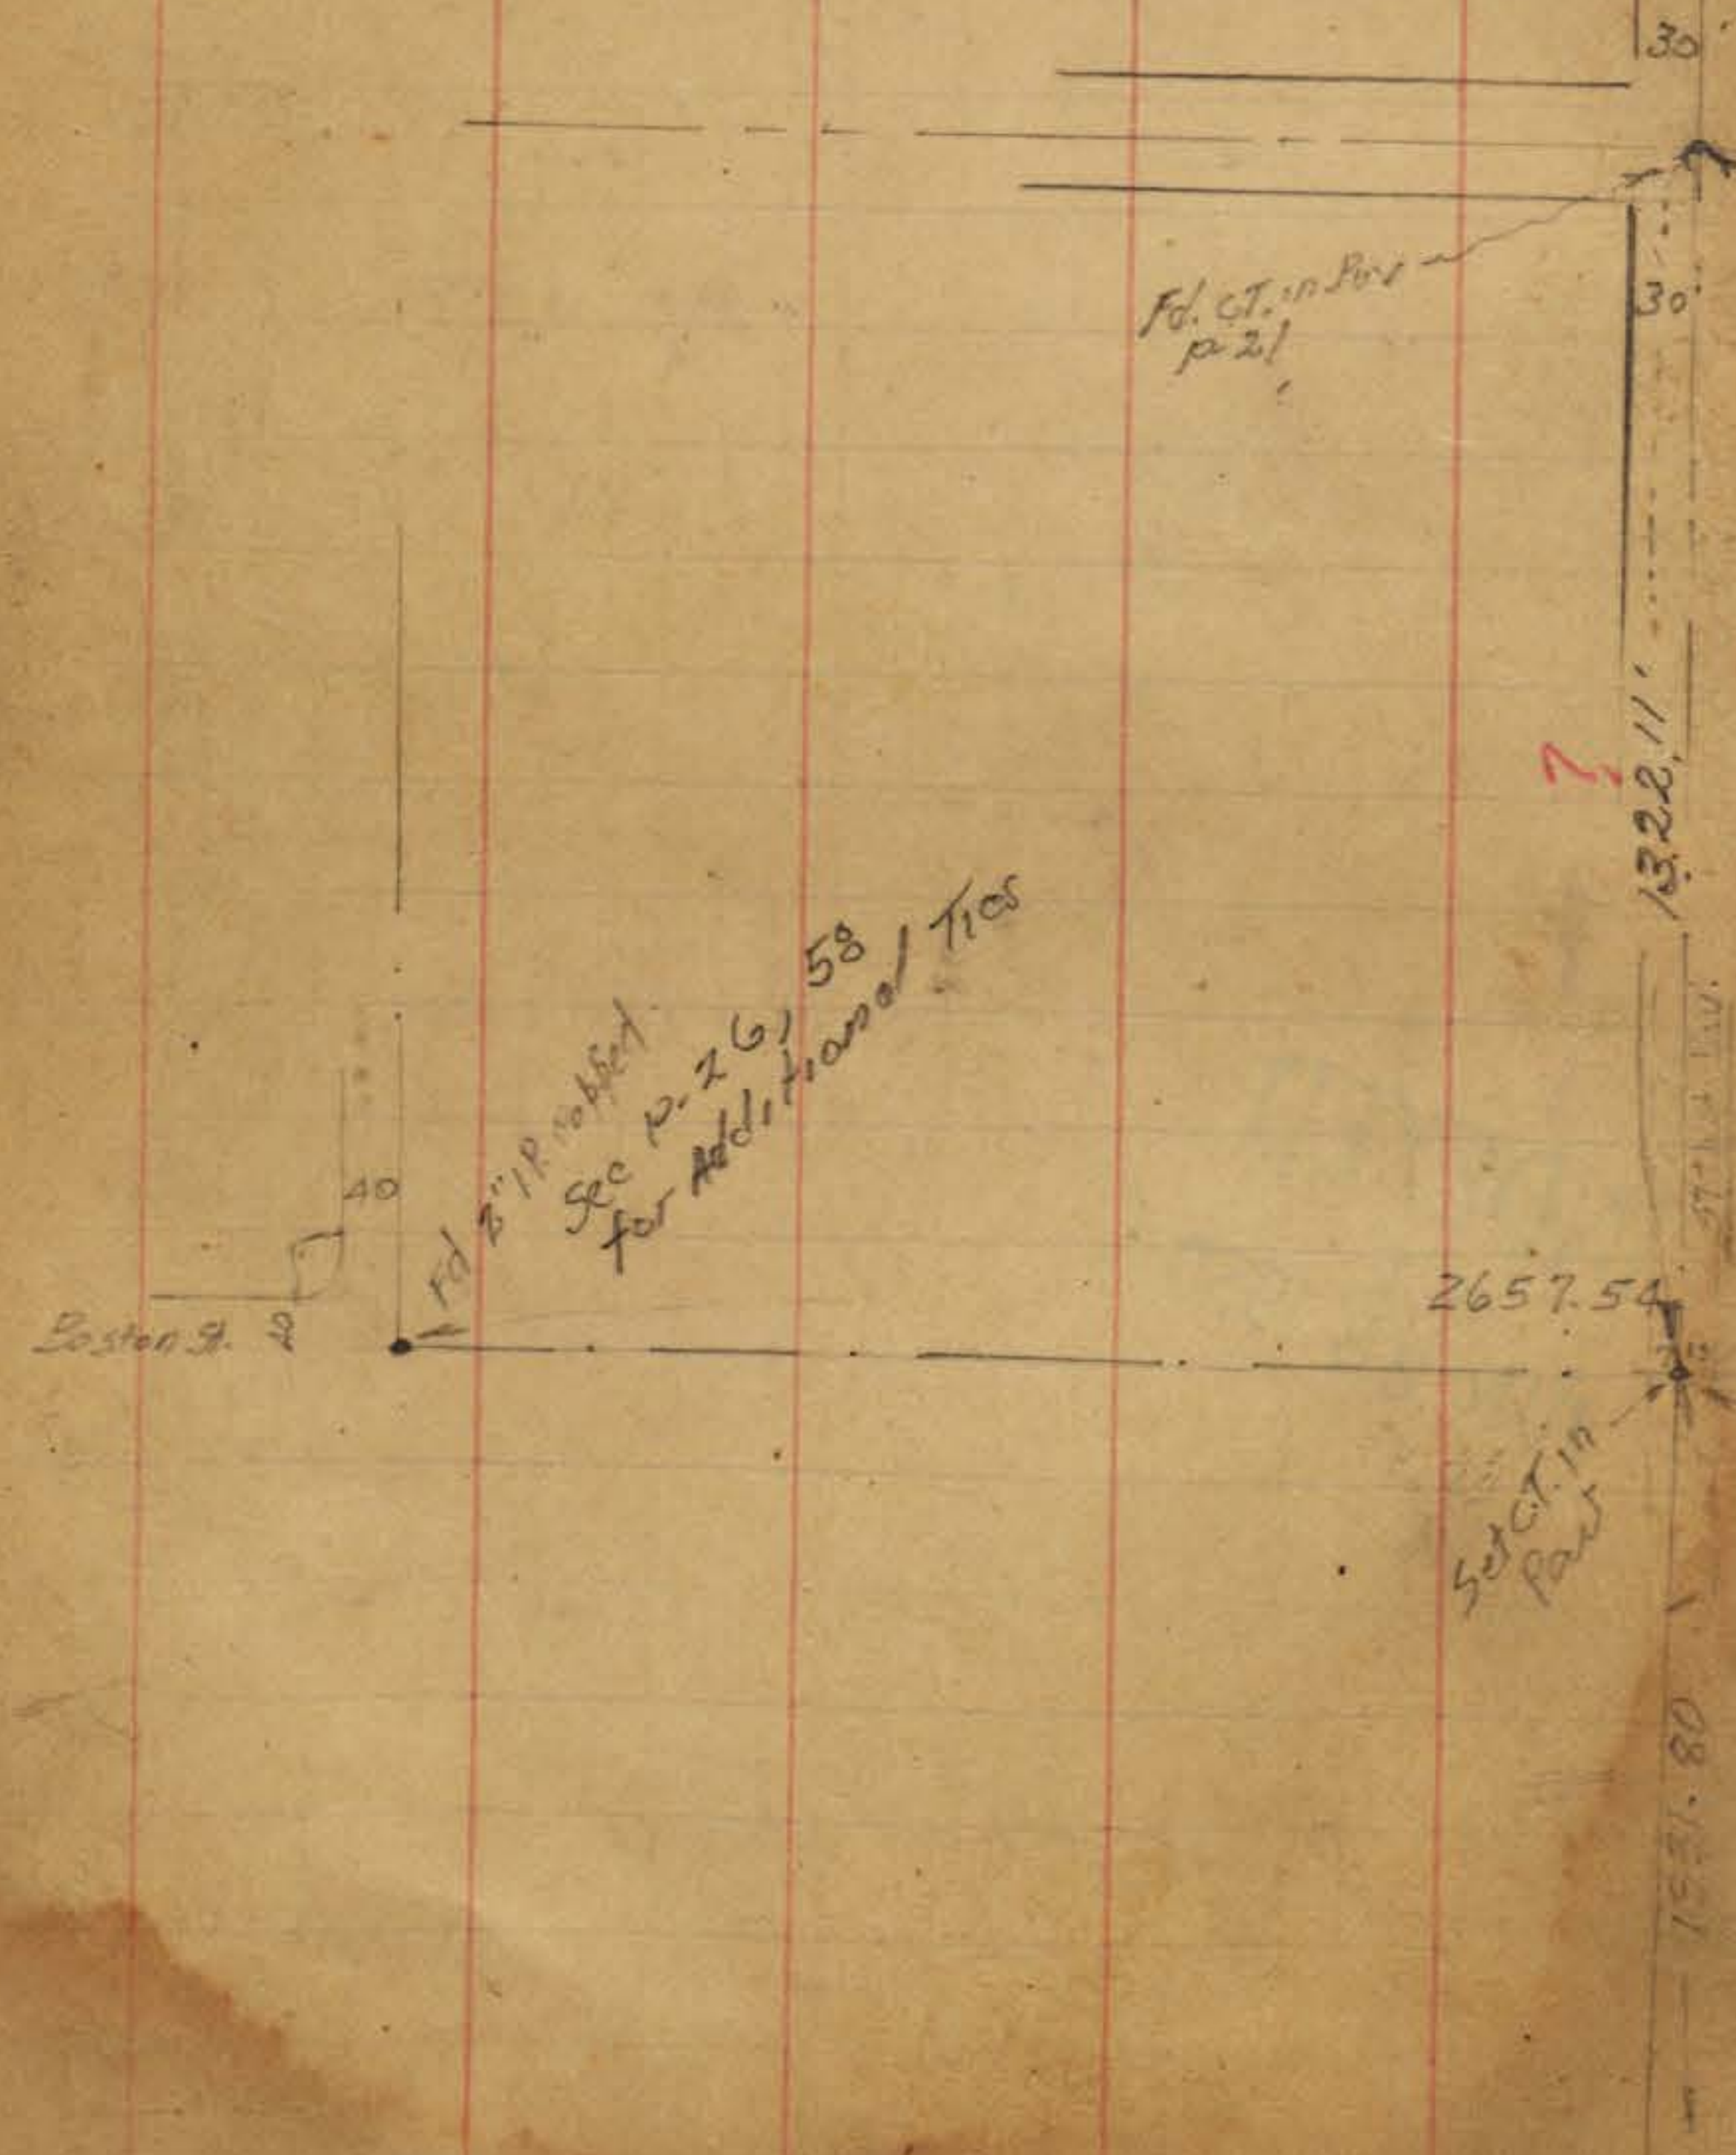 30'
Fd. C.T. in Pav
p 21
30'
1322.11'
?
Fd 2" I.P. no
See p. 26, 58
for Additional Ties
40
Boston St.
2657.54
Set C.T. in
Pav
1531.80